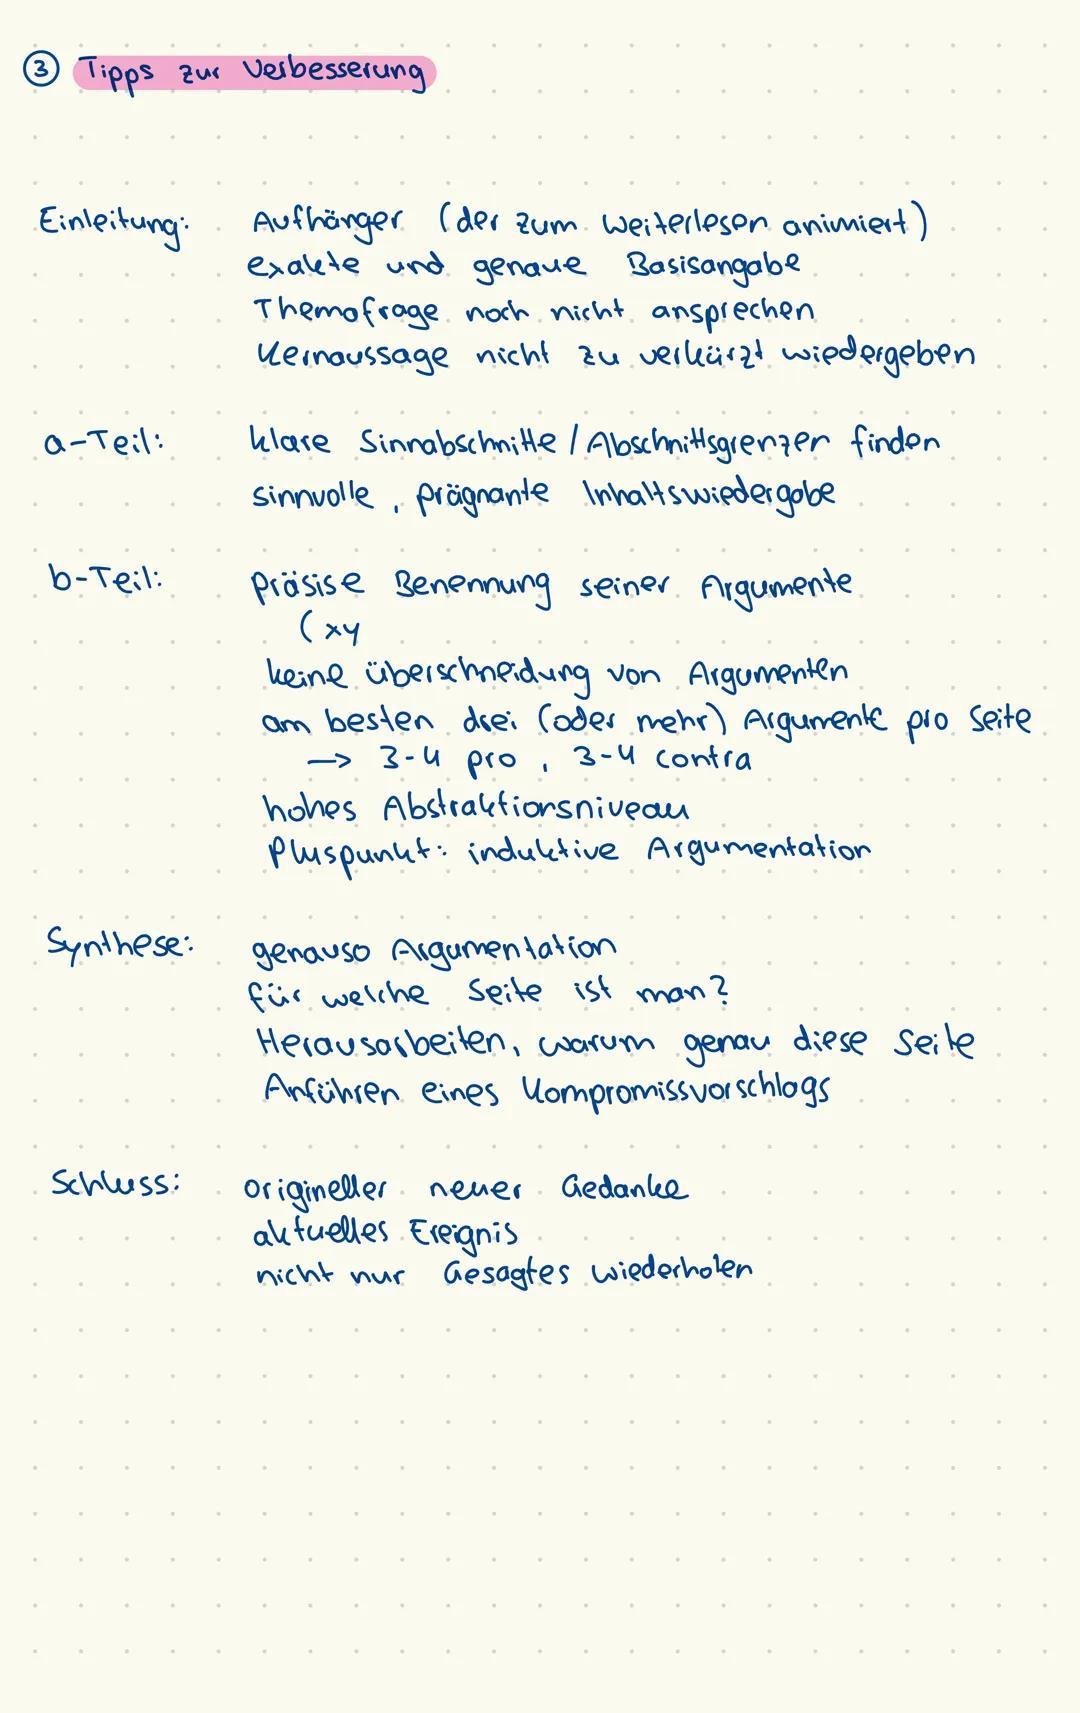 ③ Tipps zur Verbesserung
Einleitung: Aufhänger (der zum Weiterlesen animiert)
exakte und genaue Basisangabe
Themafrage noch nicht ansprechen
Kernaussage nicht zu verkürzt wiedergeben
a-Teil: klare Sinnabschnitte / Abschnittsgrenzen finden
sinnvolle, prägnante Inhaltswiedergabe
b-Teil: präsise Benennung seiner Argumente
(xy
keine überschneidung von Argumenten
am besten drei (oder mehr) Argumente pro Seite
→ 3-4 pro, 3-4 contra
hohes Abstraktionsniveau
Pluspunkt: induktive Argumentation
Synthese: genauso Argumentation
für welche Seite ist man?
Herausarbeiten, warum genau diese Seite
Anführen eines Kompromissvorschlags
Schluss: origineller neuer Gedanke
aktuelles Ereignis
nicht nur Gesagtes wiederholen